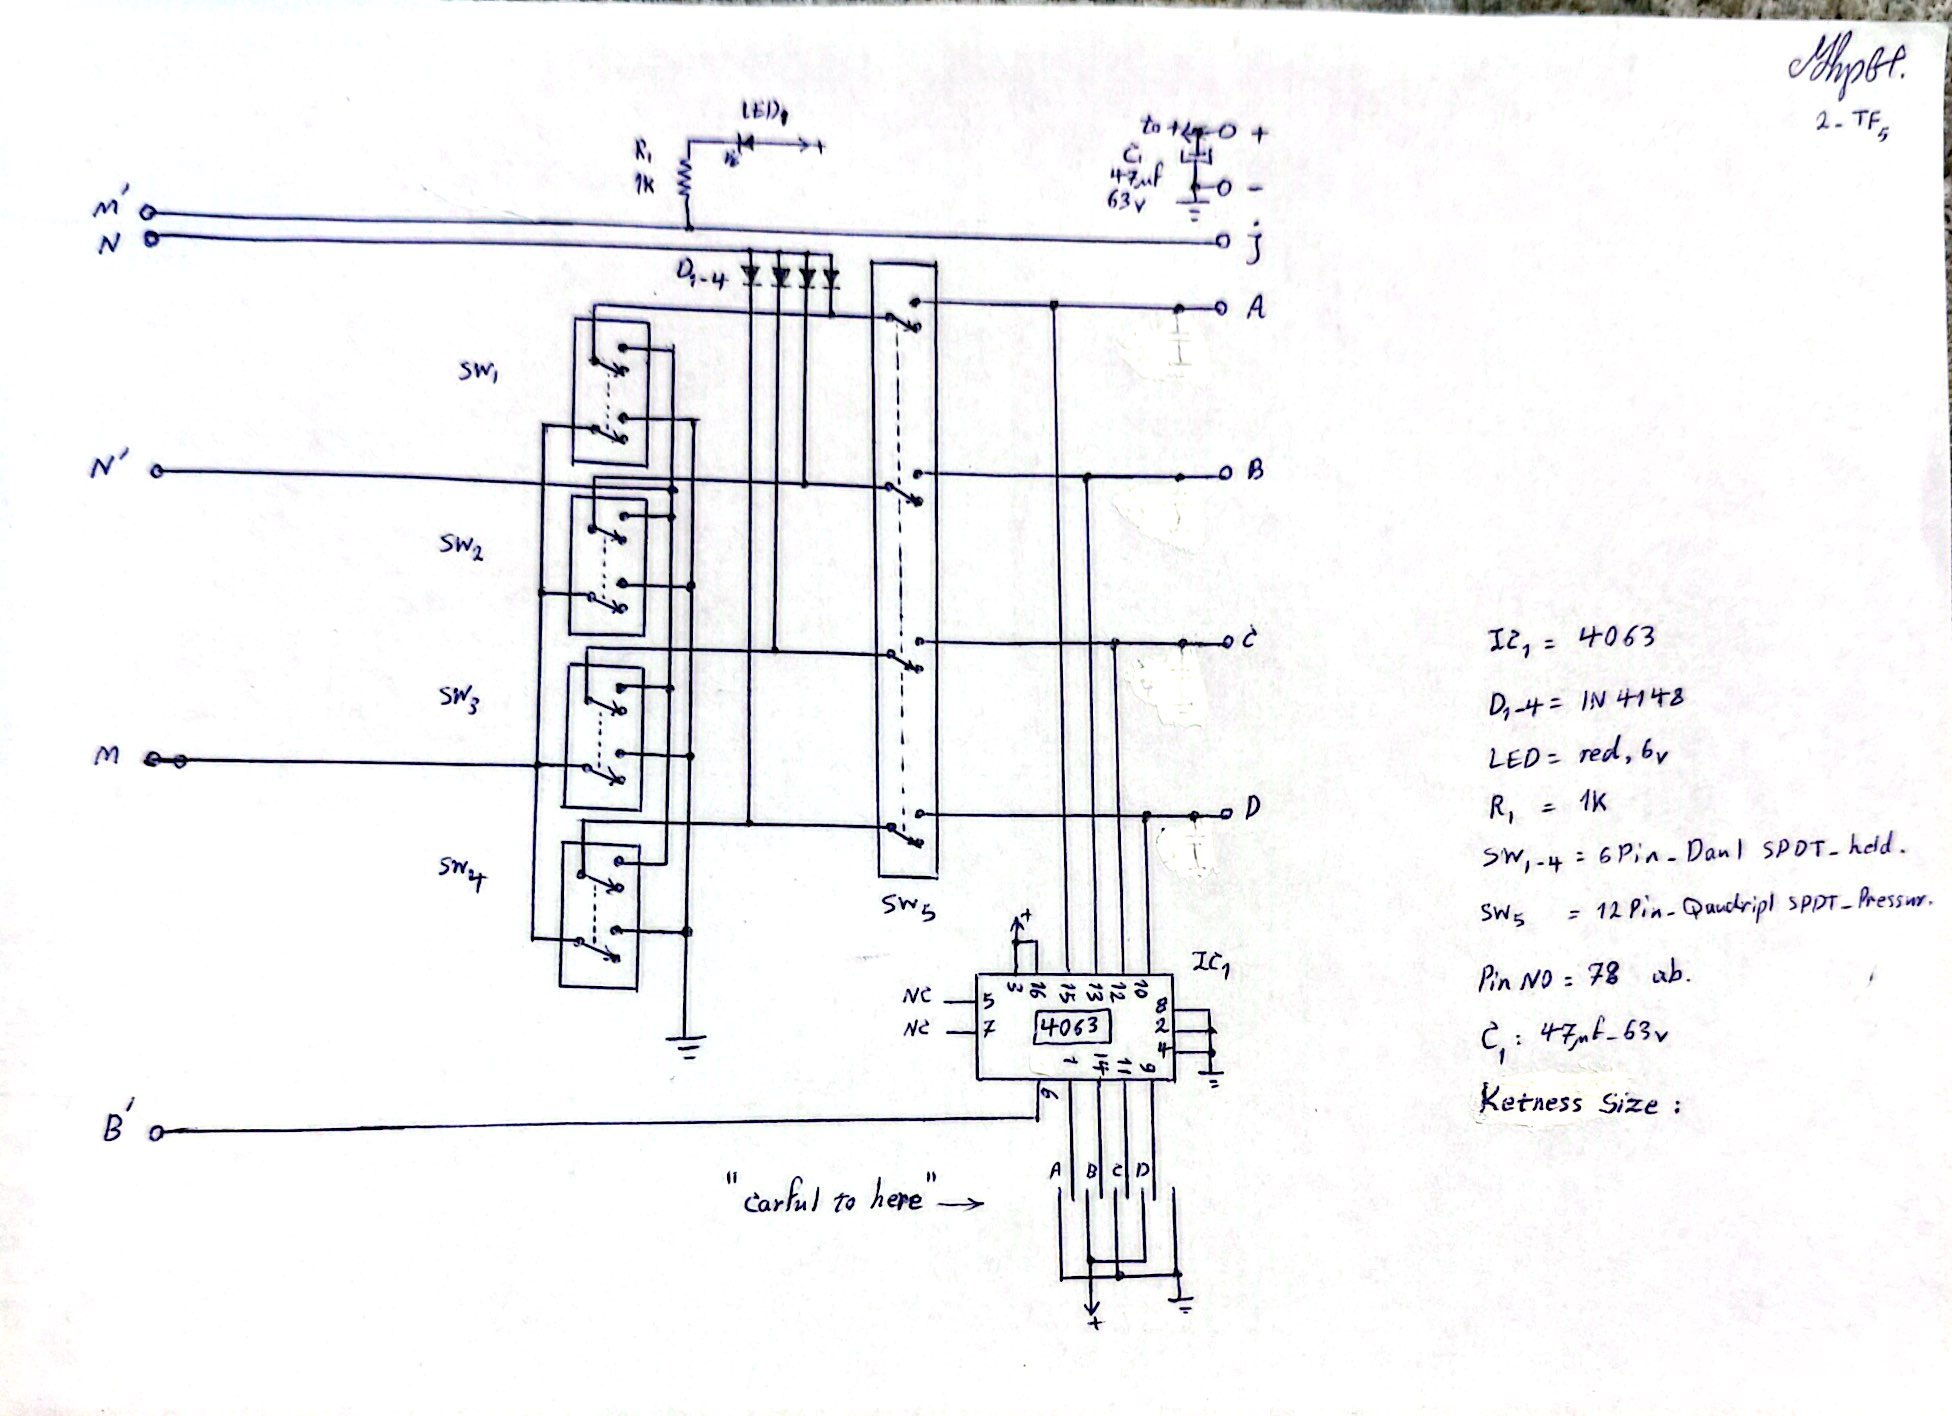 2- TF5
LED1
R1
1K
to +
+
+
C1
47µf
63v
-
M'
N
j
D1-4
A
SW1
N'
B
SW2
C
SW3
M
D
SW4
SW5
+
IC1
NC 5
3 16 15 13 12 10
8
NC 7
4063
2
4
1 14 11 9
6
B'
A B C D
"Carful to here" →
+
IC1 = 4063
D1-4 = IN 4148
LED = red, 6v
R1 = 1K
SW1-4 = 6 Pin - Daul SPDT - held.
SW5 = 12 Pin - Quudripl SPDT - Pressur.
Pin NO = 78 ab.
C1: 47µf - 63v
Ketness Size :